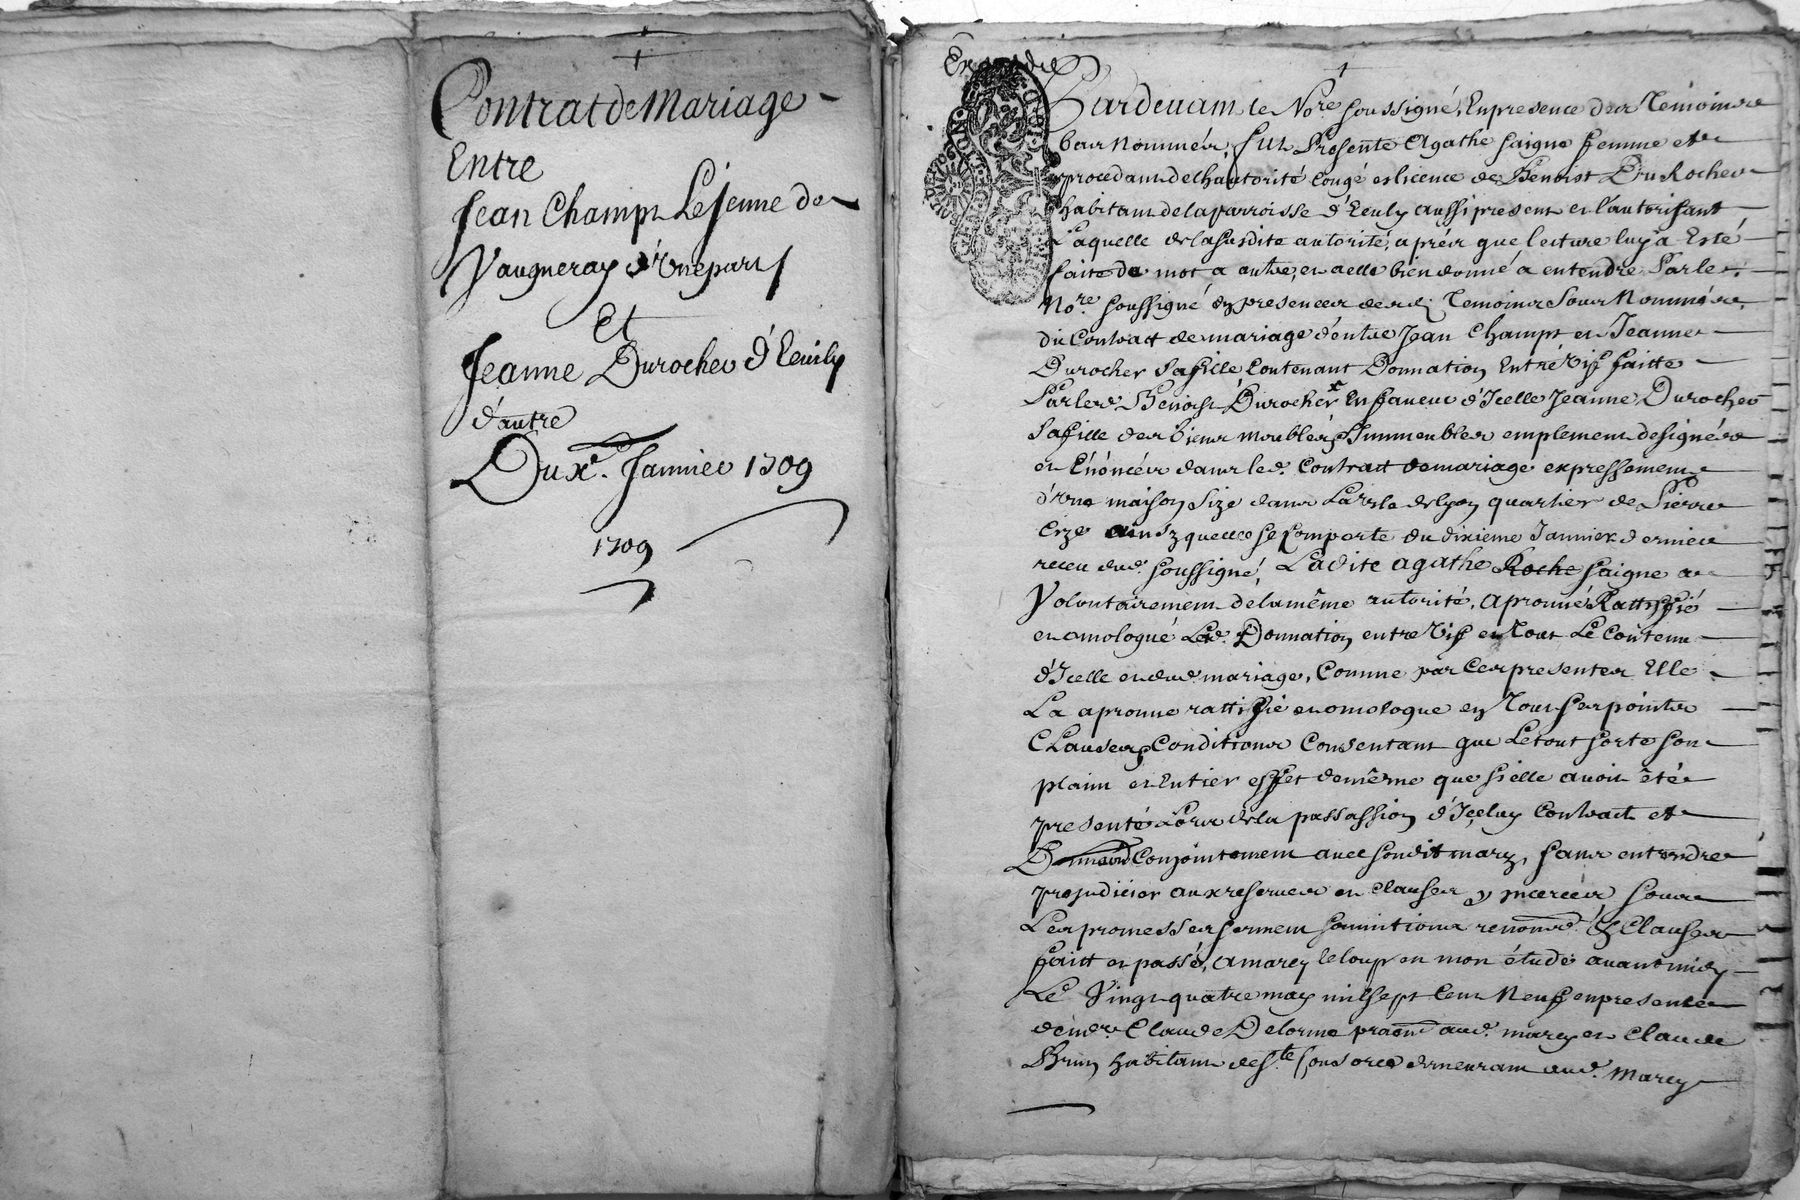 Contrat de Mariage
Entre
Jean Champt Le Jeune de
Vaugneray d'Vne part
Et
Jeanne Durocher d'Eeuily
d'autre
Du xe. Januier 1709
1709
Pardeuant le Nore soussigné, En presence des Temoins
bas Nommés, fut Presente Agathe saigne femme et
procedant de l'hautorité Congé et licence de Benoist Du Rocher
habitant de la parroisse d'Eeuly aussi present et l'autorisant
Laquelle de la susdite autorité, aprés que lecture luy a Esté
faite de mot a autre, et a elle bien donné a entendre Par le
Nore. soussigné en presences desd. Temoins Sous Nommés
du Contract de mariage d'entre Jean Champt et Jeanne
Durocher Sa fille Contenant Donnation Entre Vif faitte
Par led. Benoist Durocher En faueur d'Icelle Jeanne Durocher
Sa fille des biens meubles Immeubles emplement designés
et Enoncés dans led. Contract de mariage expressement
d'vne maison size dans La ville de lyon quartier de Pierre
Cize ainsy quelle se Comporte du dixieme Januier dernier
receu dud. soussigné, Ladite agathe Roche saigne a
Volontairement de la même autorité, aprouué Rattiffié
et omologué Lad. Donnation entre Vif et Tout Le Contenu
d'Icelle et dud. mariage, Comme par Ces presentes Elle
La aprouue rattiffie et omologue en Tous ses points
Clauses Conditions Consentant que Le tout sorte son
plain et Entier effet de même que si elle auoit été
presente Lors de la passassion d'Iceluy Contract et
Conjointement auec sondit mary, sans entendre
prejudicier aux reserues et clauses y inserées, sous
Les promesses serment soumitions renond. & Clauses
faitt et passé, a marcy le loup en mon étude auant midy
Le Vingt quatre may mil sept Cent Neuf en presence
de Claude Delorme aud. marcy et Claude
Brun habitant de Ste Consorce demeurant aud. Marcy